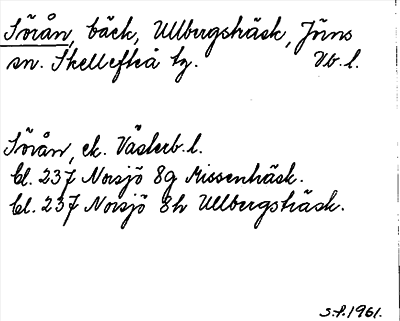 Sörån, bäck, Ullbergsträsk, Jörns
sn. Skellefteå tg. Vb. l.
Sörån, ek. Västerb. l.
bl. 237 Norsjö 8g Missenträsk.
bl. 237 Norsjö 8h Ullbergsträsk.
S.f. 1961.